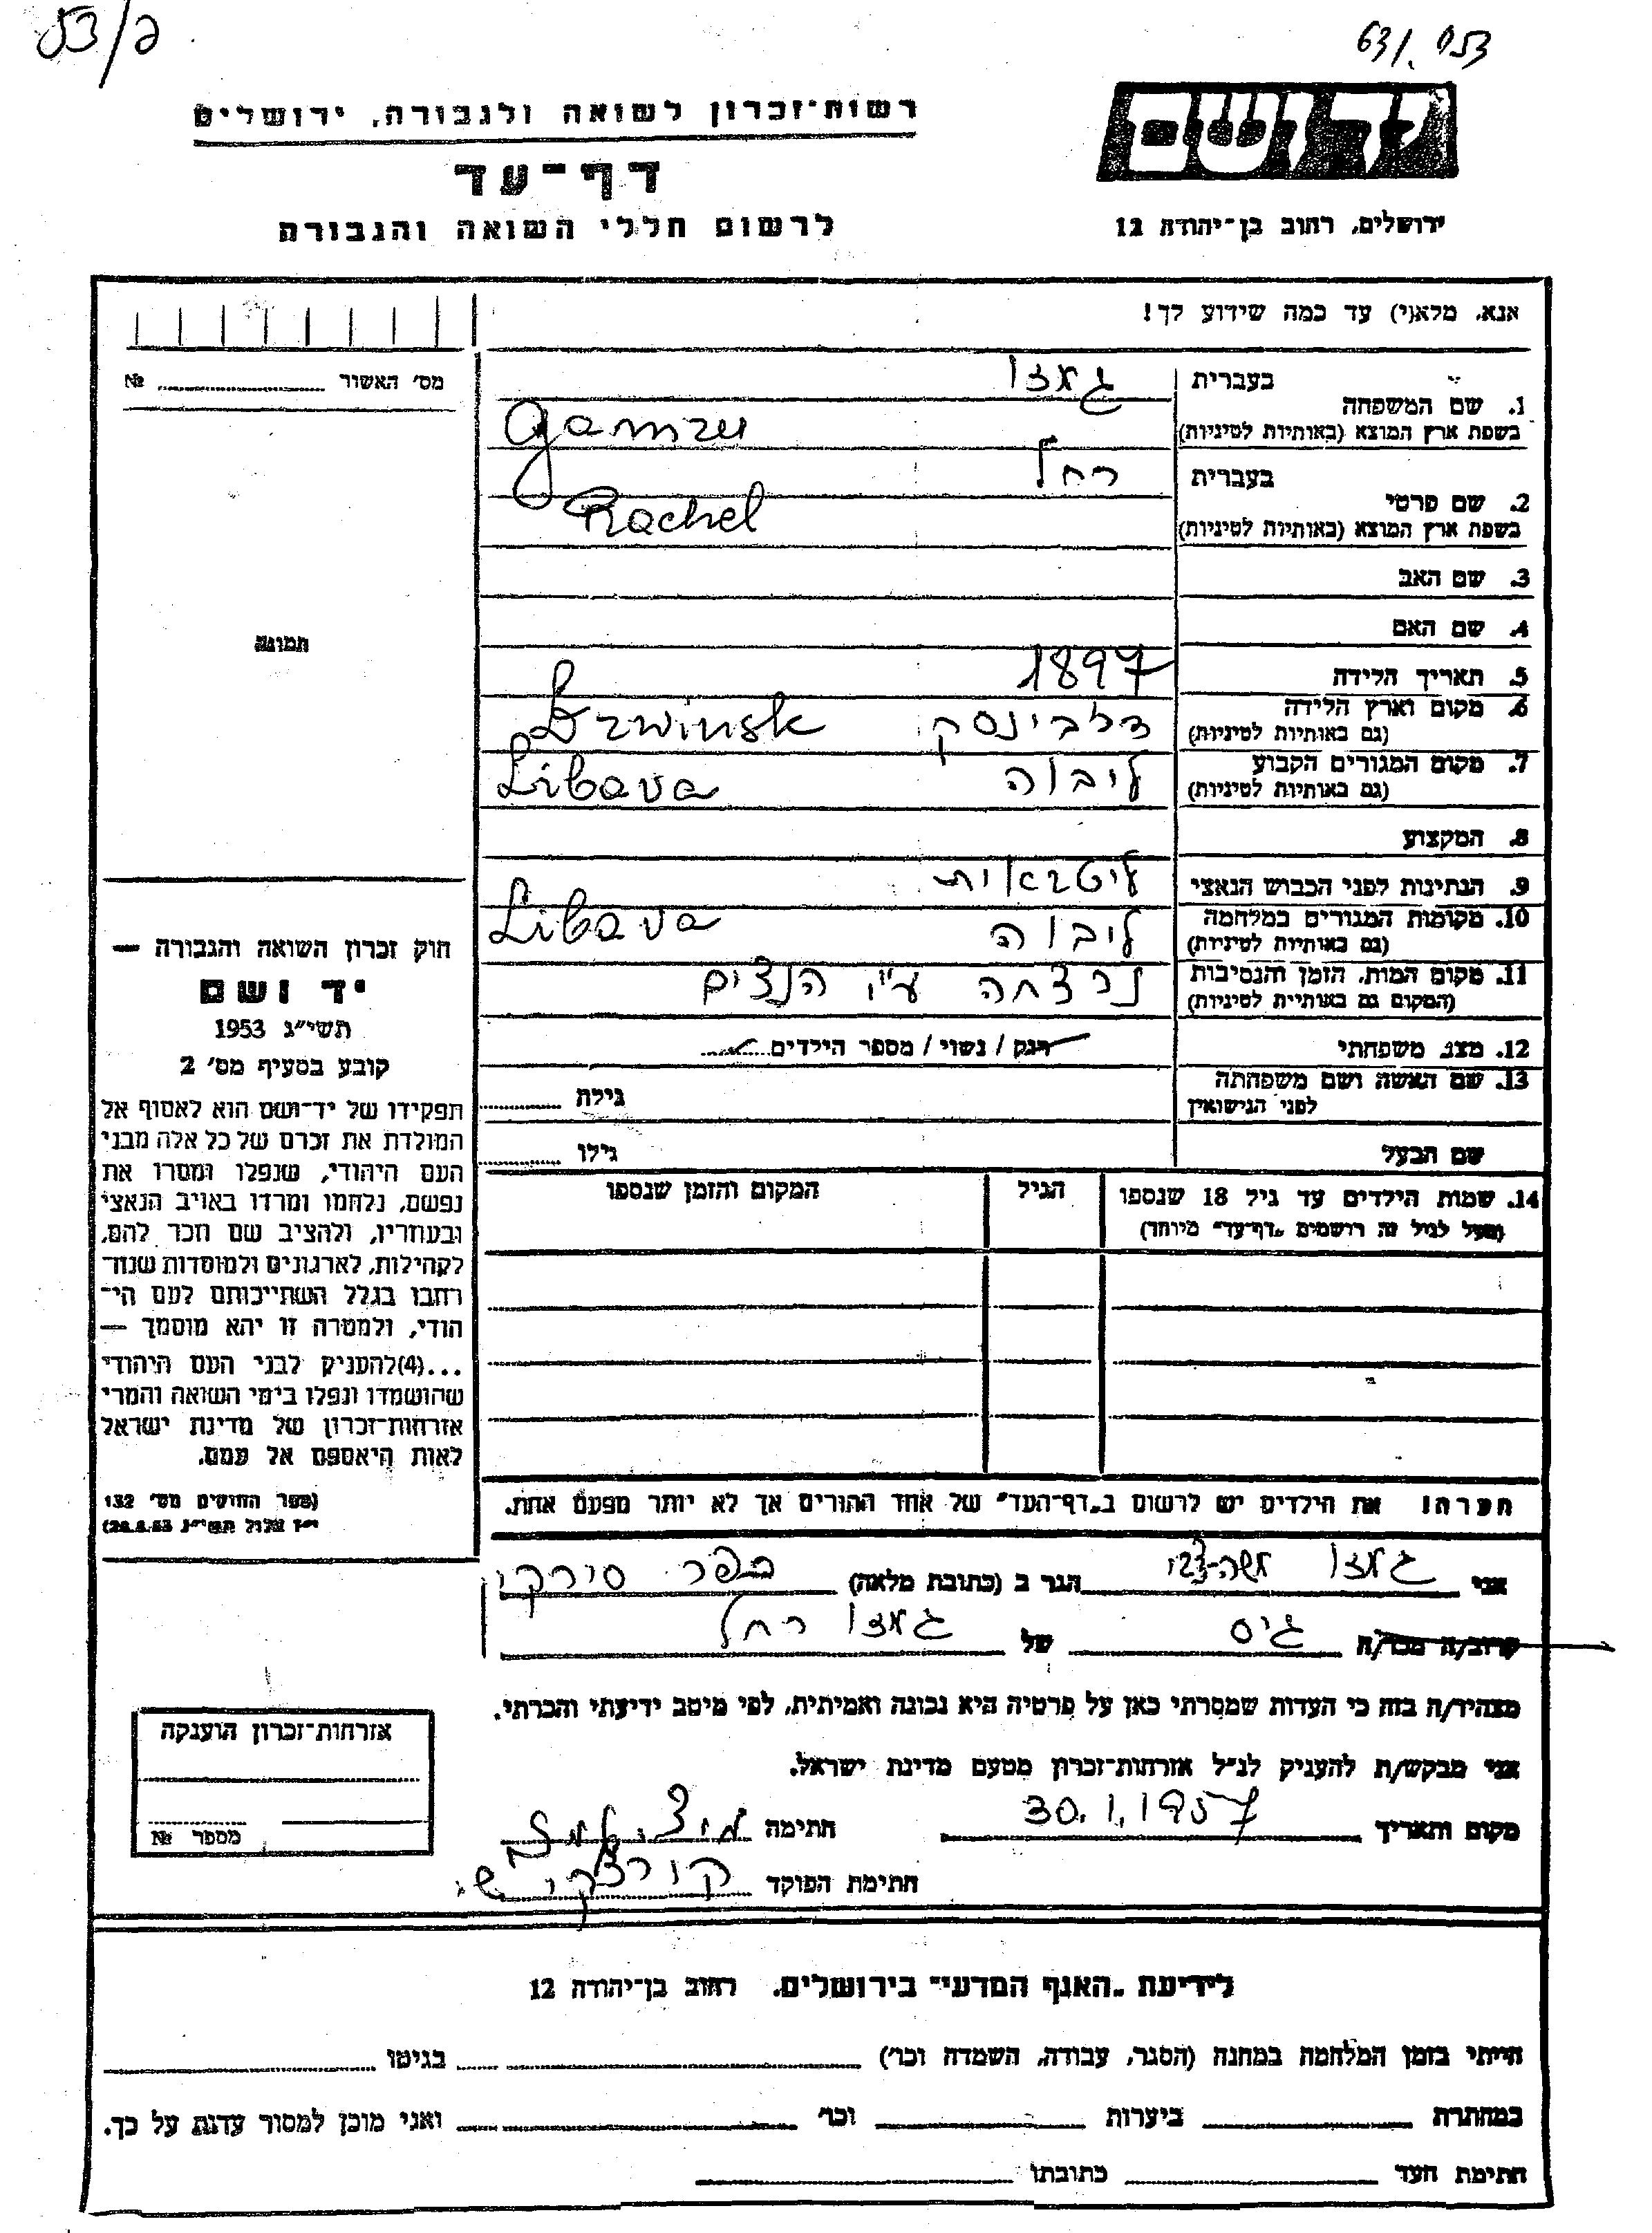 53/פ
63/. 053
יד ושם
רשות־זכרון לשואה ולגבורה, ירושלים
דף־עד
לרשום חללי השואה והגבורה
ירושלים, רחוב בן־יהודה 12
אנא, מלא(י) עד כמה שידוע לך!
מס׳ האשור № ........
בעברית גמזו
1. שם המשפחה
בשפת ארץ המוצא (באותיות לטיניות) Gamzu
בעברית רחל
2. שם פרטי
בשפת ארץ המוצא (באותיות לטיניות) Rachel
3. שם האב
4. שם האם
תמונה
5. תאריך הלידה 1897
6. מקום וארץ הלידה
(גם באותיות לטיניות) דלבינסק Drwinsk
7. מקום המגורים הקבוע
(גם באותיות לטיניות) ליבוה Libava
8. המקצוע
9. הנתינות לפני הכבוש הנאצי ליטאית
10. מקומות המגורים במלחמה
(גם באותיות לטיניות) ליבוה Libava
11. מקום המות, הזמן והנסיבות
(המקום גם באותיית לטיניות) נרצחה ע"י הנצים
12. מצב משפחתי רוק / נשוי / מספר הילדים........
13. שם האשה ושם משפחתה
לפני הנישואין גילה ........
שם הבעל גילו ........
14. שמות הילדים עד גיל 18 שנספו הגיל המקום והזמן שנספו
(מעל לגיל זה רושמים „דף־עד" מיוחד)
חוק זכרון השואה והגבורה —
יד ושם
תשי״ג 1953
קובע בסעיף מס׳ 2
תפקידו של יד־ושם הוא לאסוף אל
המולדת את זכרם של כל אלה מבני
העם היהודי, שנפלו ומסרו את
נפשם, נלחמו ומרדו באויב הנאצי
ובעוזריו, ולהציב שם וזכר להם,
לקהילות, לארגונים ולמוסדות שנח־
רחבו בגלל השתייכותם לעם הי־
הודי, ולמטרה זו יהא מוסמך —
...(4)להעניק לבני העם היהודי
שהושמדו ונפלו בימי השואה והמרי
אזרחות־זכרון של מדינת ישראל
לאות היאספם אל עמם.
(ספר החוקים מס׳ 132
י״ז אלול תשי״ג 28.8.53)
הערה! את הילדים יש לרשום ב„דף־העד" של אחד ההורים אך לא יותר מפעם אחת.
אני גמזו משה-צבי הגר ב (כתובת מלאה) בכפר סירקין
קרוב/ה מכר/ה גיס של גמזו רחל
מצהיר/ה בזה כי העדות שמסרתי כאן על פרטיה היא נכונה ואמיתית, לפי מיטב ידיעתי והכרתי.
אני מבקש/ת להעניק לנ״ל אזרחות־זכרון מטעם מדינת ישראל.
מקום ותאריך 30.1.1957 חתימה
חתימת הפוקד
אזרחות־זכרון הוענקה
מספר №
לידיעת „האגף המדעי" בירושלים, רחוב בן־יהודה 12
הייתי בזמן המלחמה במחנה (הסגר, עבודה, השמדה וכר׳) בגיטו
במחתרת ביערות וכר׳ ואני מוכן למסור עדות על כך.
חתימת העד כתובתו